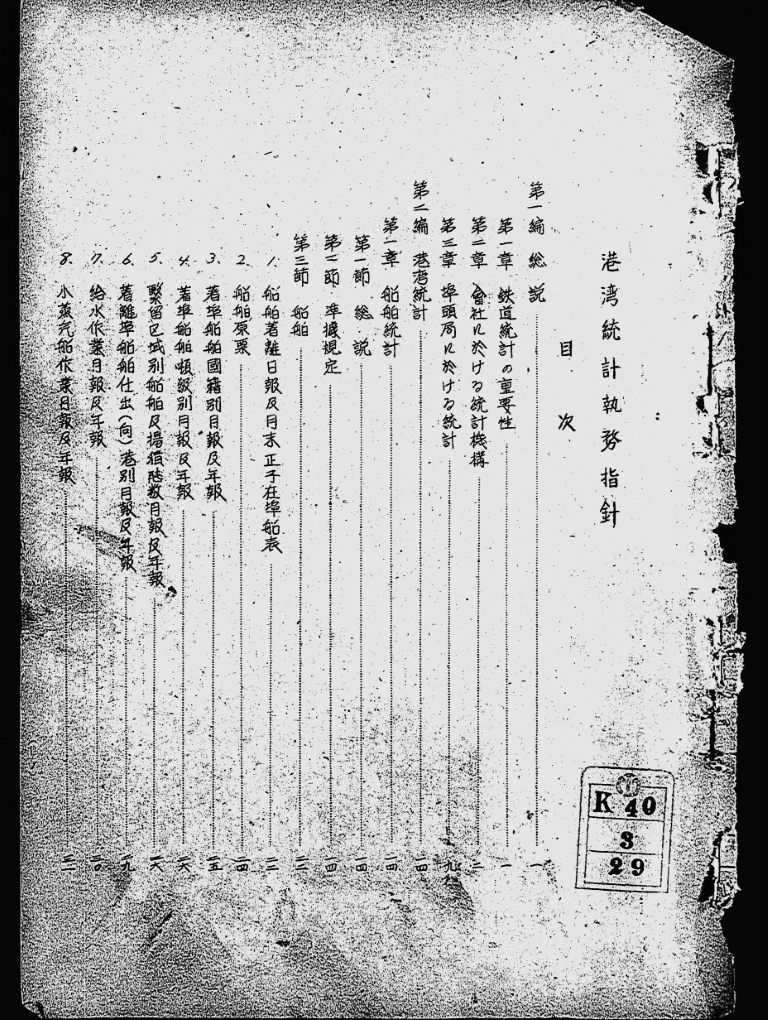 港湾統計執務指針
目次
第一編 総説 一
第一章 鉄道統計の重要性 一
第二章 會社に於ける統計機構 二
第三章 埠頭局に於ける統計 九
第二編 港湾統計 一四
第一章 船舶統計 一四
第一節 総説 一四
第二節 準據規定 一四
第三節 船舶 二二
1. 船舶着離日報及月末正子在埠船表 二二
2. 船舶原票 二四
3. 着埠船舶國籍別月報及年報 二五
4. 着埠船舶噸級別月報及年報 二六
5. 繋留区域別船舶及揚積噸数月報及年報 二八
6. 着離埠船舶仕出(向)港別月報及年報 二九
7. 給水作業月報及年報 三〇
8. 小蒸汽船作業月報及年報 三一
K 40
3
29